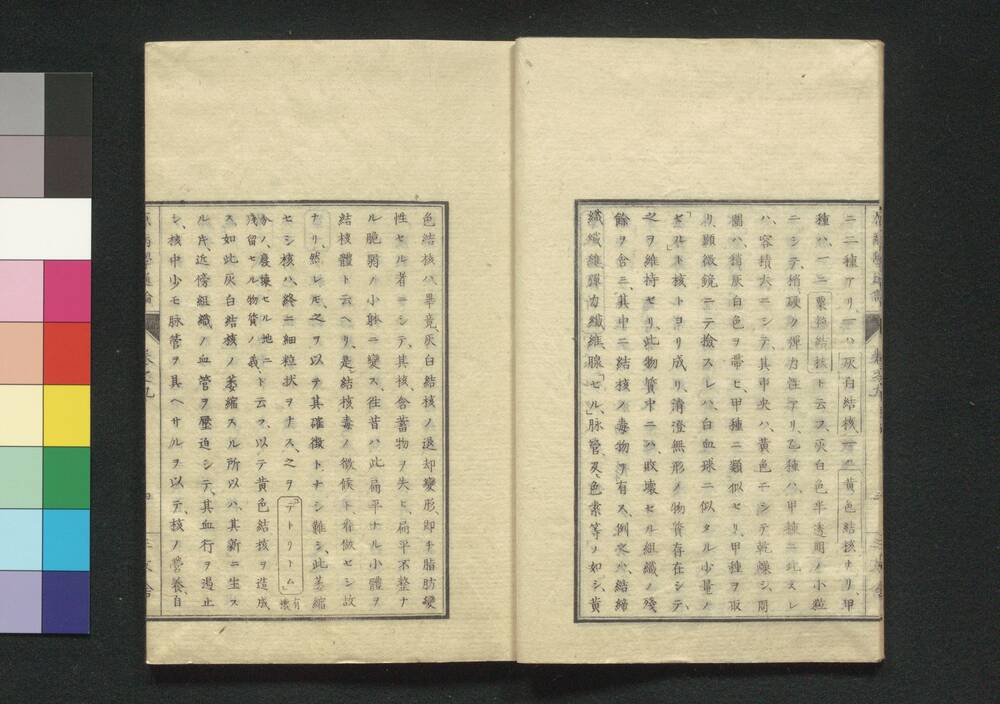 ニ二種アリ、一ハ灰白結核一ハ黄色結核ナリ、甲
種ハ、一ニ粟粒結核ト云フ灰白色半透明ノ小粒
ニシテ、稍硬ク彈力性アリ、乙種ハ、甲種ニ比スレ
ハ、容積大ニシテ、其中央ハ、黄色ニシテ乾燥シ、周
圍ハ、稍灰白色ヲ帶ヒ、甲種ニ類似セリ、甲種ヲ取
リ、顯微鏡ニテ撿スレハ、白血球ニ似タル少量ノ
「セル」ト核トヨリ成リ、清澄無形ノ物質存在シテ、
之ヲ維持セリ、此物質中ニハ、敗壞セル組織ノ殘
餘ヲ含ミ、其中ニ結核ノ毒物ヲ有ス、例之ハ結締
織纖維彈力纖維、腺「セル」、脉管、及、色素等ノ如シ、黄
色結核ハ、畢竟、灰白結核ノ退却變形、即チ脂肪變
性セル者ニシテ、其核、含蓄物ヲ失ヒ、扁平不整ナ
ル脆弱ノ小躰ニ變ス、徃昔ハ此扁平ナル小體ヲ
結核體ト云ヘリ、是、結核毒ノ徴候ト看做セシ故
ナリ、然レモ、之ヲ以テ其確徴トナシ難シ、此萎縮
セシ核ハ、終ニ細粒状ヲナス、之ヲ「デトリーム」有壞
分ノ、廢壞セル地ニ
殘留セル物質ノ義、ト云フ、以テ黄色結核ヲ造成
ス、如此灰白結核ノ萎縮スル所以ハ、其新ニ生ス
ル片、近傍組織ノ血管ヲ壓迫シテ、其血行ヲ遏止
シ、核中少モ脉管ヲ具ヘサルヲ以テ、核ノ營養、自